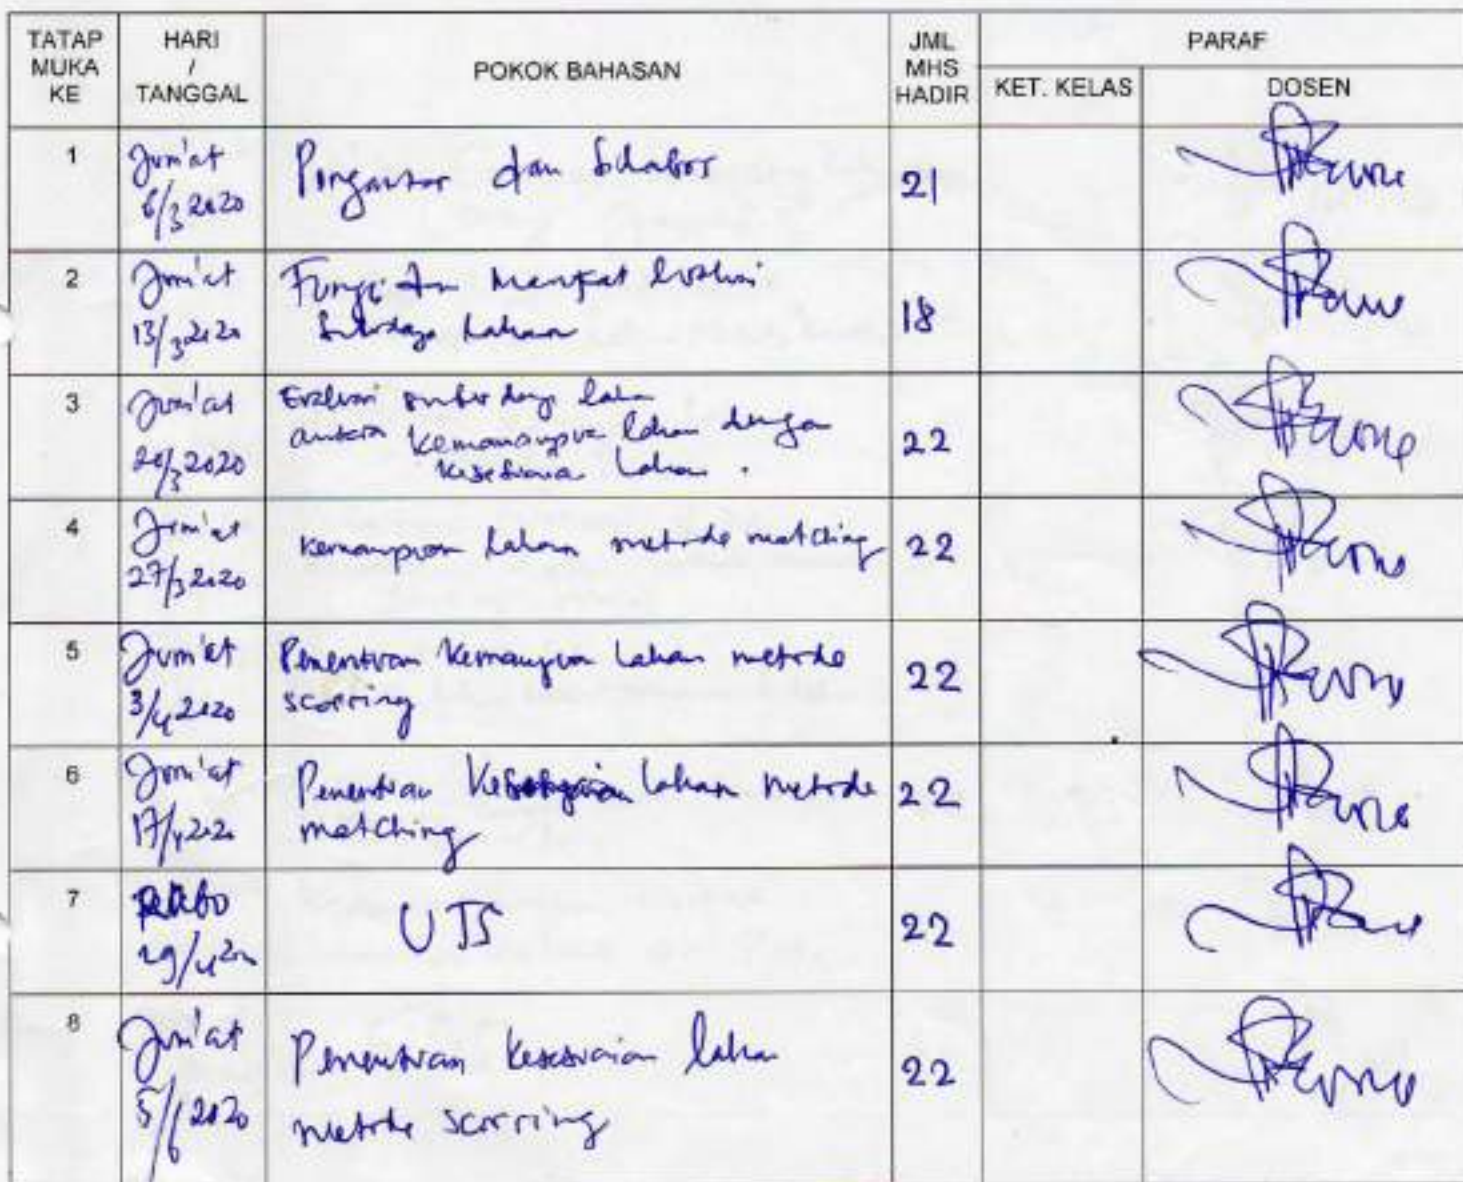 TATAP MUKA KE
HARI / TANGGAL
POKOK BAHASAN
JML MHS HADIR
PARAF
KET. KELAS
DOSEN
1
Jum'at
6/3 2020
Pengantar dan Silabus
21
2
Jum'at
13/3 2020
Fungsi dan Manfaat Evaluasi
Sumberdaya Lahan
18
3
Jum'at
20/3 2020
Evaluasi sumberdaya lahan
antara kemampuan lahan dengan
kesesuaian Lahan.
22
4
Jum'at
27/3 2020
kemampuan lahan metode matching
22
5
Jum'at
3/4 2020
Penentuan Kemampuan Lahan metode
scorring
22
6
Jum'at
17/4 2020
Penentuan Kesesuaian lahan metode
matching
22
7
Rabo
29/4 20
UTS
22
8
Jum'at
5/6 2020
Penentuan kesesuaian lahan
metode scorring
22